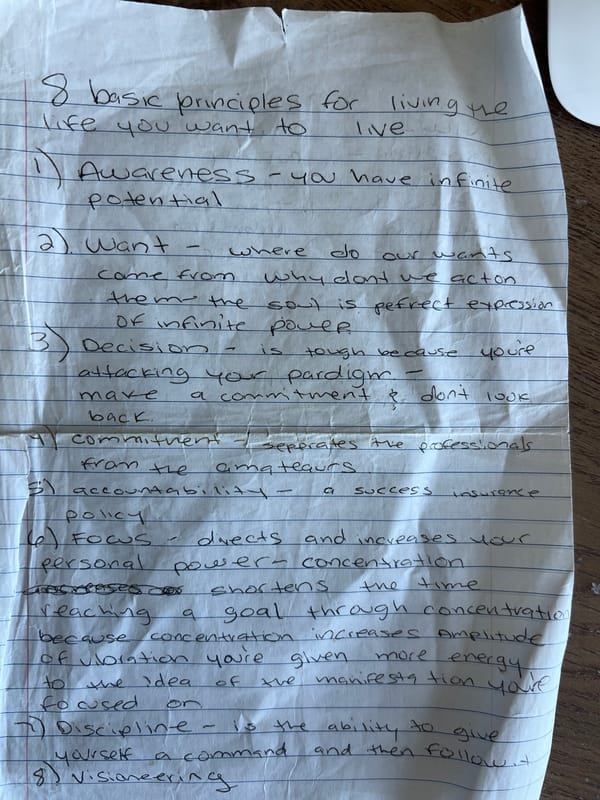 8 basic principles for living the
life you want to live
1) Awareness - you have infinite
potential
2). Want - where do our wants
come from why dont we act on
them - the soul is pefrect expression
of infinite power
3) Decision - is tough because you're
attacking your pardigm -
make a commitment & don't look
back.
4) commitment - seperates the professionals
from the amateaurs
5) accountability - a success insurance
policy
6) Focus - directs and increases your
personal power - concentration
shortens the time
reaching a goal through concentration
because concentration increases Amplitude
of vibration you're given more energy
to the idea of the manifestation you're
focused on
7) Discipline - is the ability to give
yourself a command and then follow it
8) Visioneering